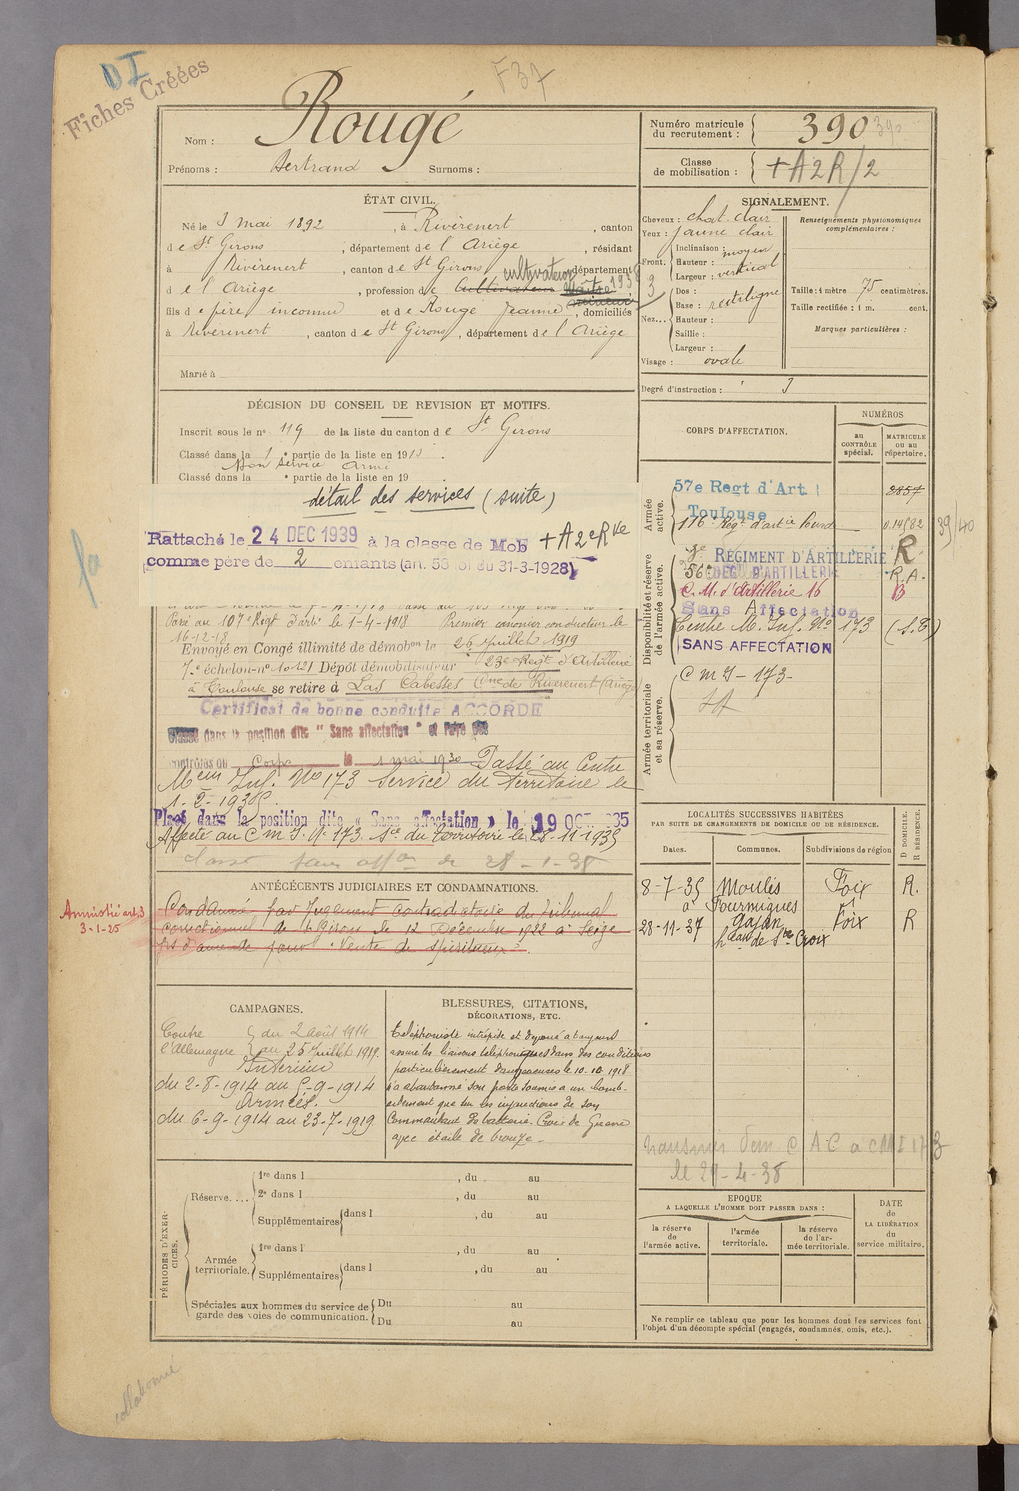 DI
Fiches Créées
F37
Nom : Rougé
Prénoms : Bertrand Surnoms :
Numéro matricule du recrutement : 390
Classe de mobilisation : + A2R/2
ÉTAT CIVIL.
Né le 3 mai 1892, à Rivèrenert, canton
de St Girons, département de l'Ariège, résidant
à Rivèrenert, canton de St Girons, département
d de l'Ariège, profession de cultivateur
fils de père inconnu et de Rouge Jeanne, domiciliés
à Rivèrenert, canton de St Girons, département de l'Ariège
Marié à
SIGNALEMENT.
Cheveux : chat. clair
Yeux : jaune clair
Front. Inclinaison : moyen
Hauteur :
Largeur : vertical
Nez... Dos :
Base : rectiligne
Hauteur :
Saillie :
Largeur :
Visage : ovale
Renseignements physionomiques complémentaires :
Taille : 1 mètre 75 centimètres.
Taille rectifiée : 1 m. cent.
Marques particulières :
Degré d'instruction : 3
DÉCISION DU CONSEIL DE REVISION ET MOTIFS.
Inscrit sous le n° 119 de la liste du canton de St Girons
Classé dans la 1e partie de la liste en 1913.
Bon service armé
Classé dans la e partie de la liste en 19
détail des services (suite)
Rattaché le 24 DEC 1939 à la classe de Mob + A2eRve
comme père de 2 enfants (art. 58 loi du 31-3-1928)
Passé au 107e Regt d'artie le 1-4-1918 Premier canonnier conducteur le
16-12-18
Envoyé en Congé illimité de démobon le 26 Juillet 1919
7e échelon - n° 10121 Dépôt démobilisateur 23e Regt d'Artillerie
à Toulouse se retire à Las Cabesses Cne de Riverenert (Ariège)
Certificat de bonne conduite ACCORDÉ
Classé dans la position dite "Sans affectation" et rayé des
contrôles du Corps le 1 mai 1930 Passé au Centre
Meur Inf. No 173 Service du Territoire le
1-2-1935.
Placé dans la position dite « Sans affectation » le 19 OCT 1935
Affecté au C M I. N° 173 Sce du Territoire le 28-11-1935
Classé sans affon le 28-1-38
CORPS D'AFFECTATION.
NUMÉROS
au CONTRÔLE spécial.
MATRICULE ou au répertoire.
Armée active.
57e Regt d'Art. Toulouse 2857
116e Regt d'artie lourde 39/40
Disponibilité et réserve de l'armée active.
REGIMENT D'ARTILLERIE R
56e R.A.
C. M. d'artillerie 16 B
Sans Affectation
Centre M. Inf. No 173 (S.T)
SANS AFFECTATION
Armée territoriale et sa réserve.
C m I - 173 -
SA
ANTÉCÉDENTS JUDICIAIRES ET CONDAMNATIONS.
Amnistié art. 3
3-1-25
Condamné par Jugement contradictoire du Tribunal
correctionnel de St Girons le 12 Décembre 1922 à Seize
frs d'amende pour "Vente de spiritueux".
LOCALITÉS SUCCESSIVES HABITÉES
PAR SUITE DE CHANGEMENTS DE DOMICILE OU DE RÉSIDENCE.
Dates. Communes. Subdivisions de région D DOMICILE. R RÉSIDENCE.
8-7-35 Moulis Foix R.
à Fourmigues
28-11-37 Gajan Foix R
heau de Ste Croix
CAMPAGNES.
Contre l'Allemagne du 2 Août 1914
au 25 Juillet 1919.
Intérieur
du 2-8-1914 au 5-9-1914
Armées.
du 6-9-1914 au 23-7-1919
BLESSURES, CITATIONS,
DÉCORATIONS, ETC.
Téléphoniste intrépide et dévoué a toujours
assuré les liaisons téléphoniques dans des conditions
particulièrement dangereuses le 10.10.1918
n'a abandonné son poste soumis à un bomb-
ardement que sur les injonctions de son
Commandant de batterie. Croix de Guerre
avec étoile de bronze.
transmis Dem. C A C à CMI 173
le 21-4-38
PÉRIODES D'EXERCICES.
Réserve.... 1re dans l , du au
2e dans l , du au
Supplémentaires dans l , du au
Armée territoriale. 1re dans l , du au
Supplémentaires dans l , du au
Spéciales aux hommes du service de garde des voies de communication. Du au
Du au
EPOQUE
A LAQUELLE L'HOMME DOIT PASSER DANS :
la réserve de l'armée active.
l'armée territoriale.
la réserve de l'armée territoriale.
DATE de LA LIBÉRATION du service militaire.
Ne remplir ce tableau que pour les hommes dont les services font
l'objet d'un décompte spécial (engagés, condamnés, omis, etc.).